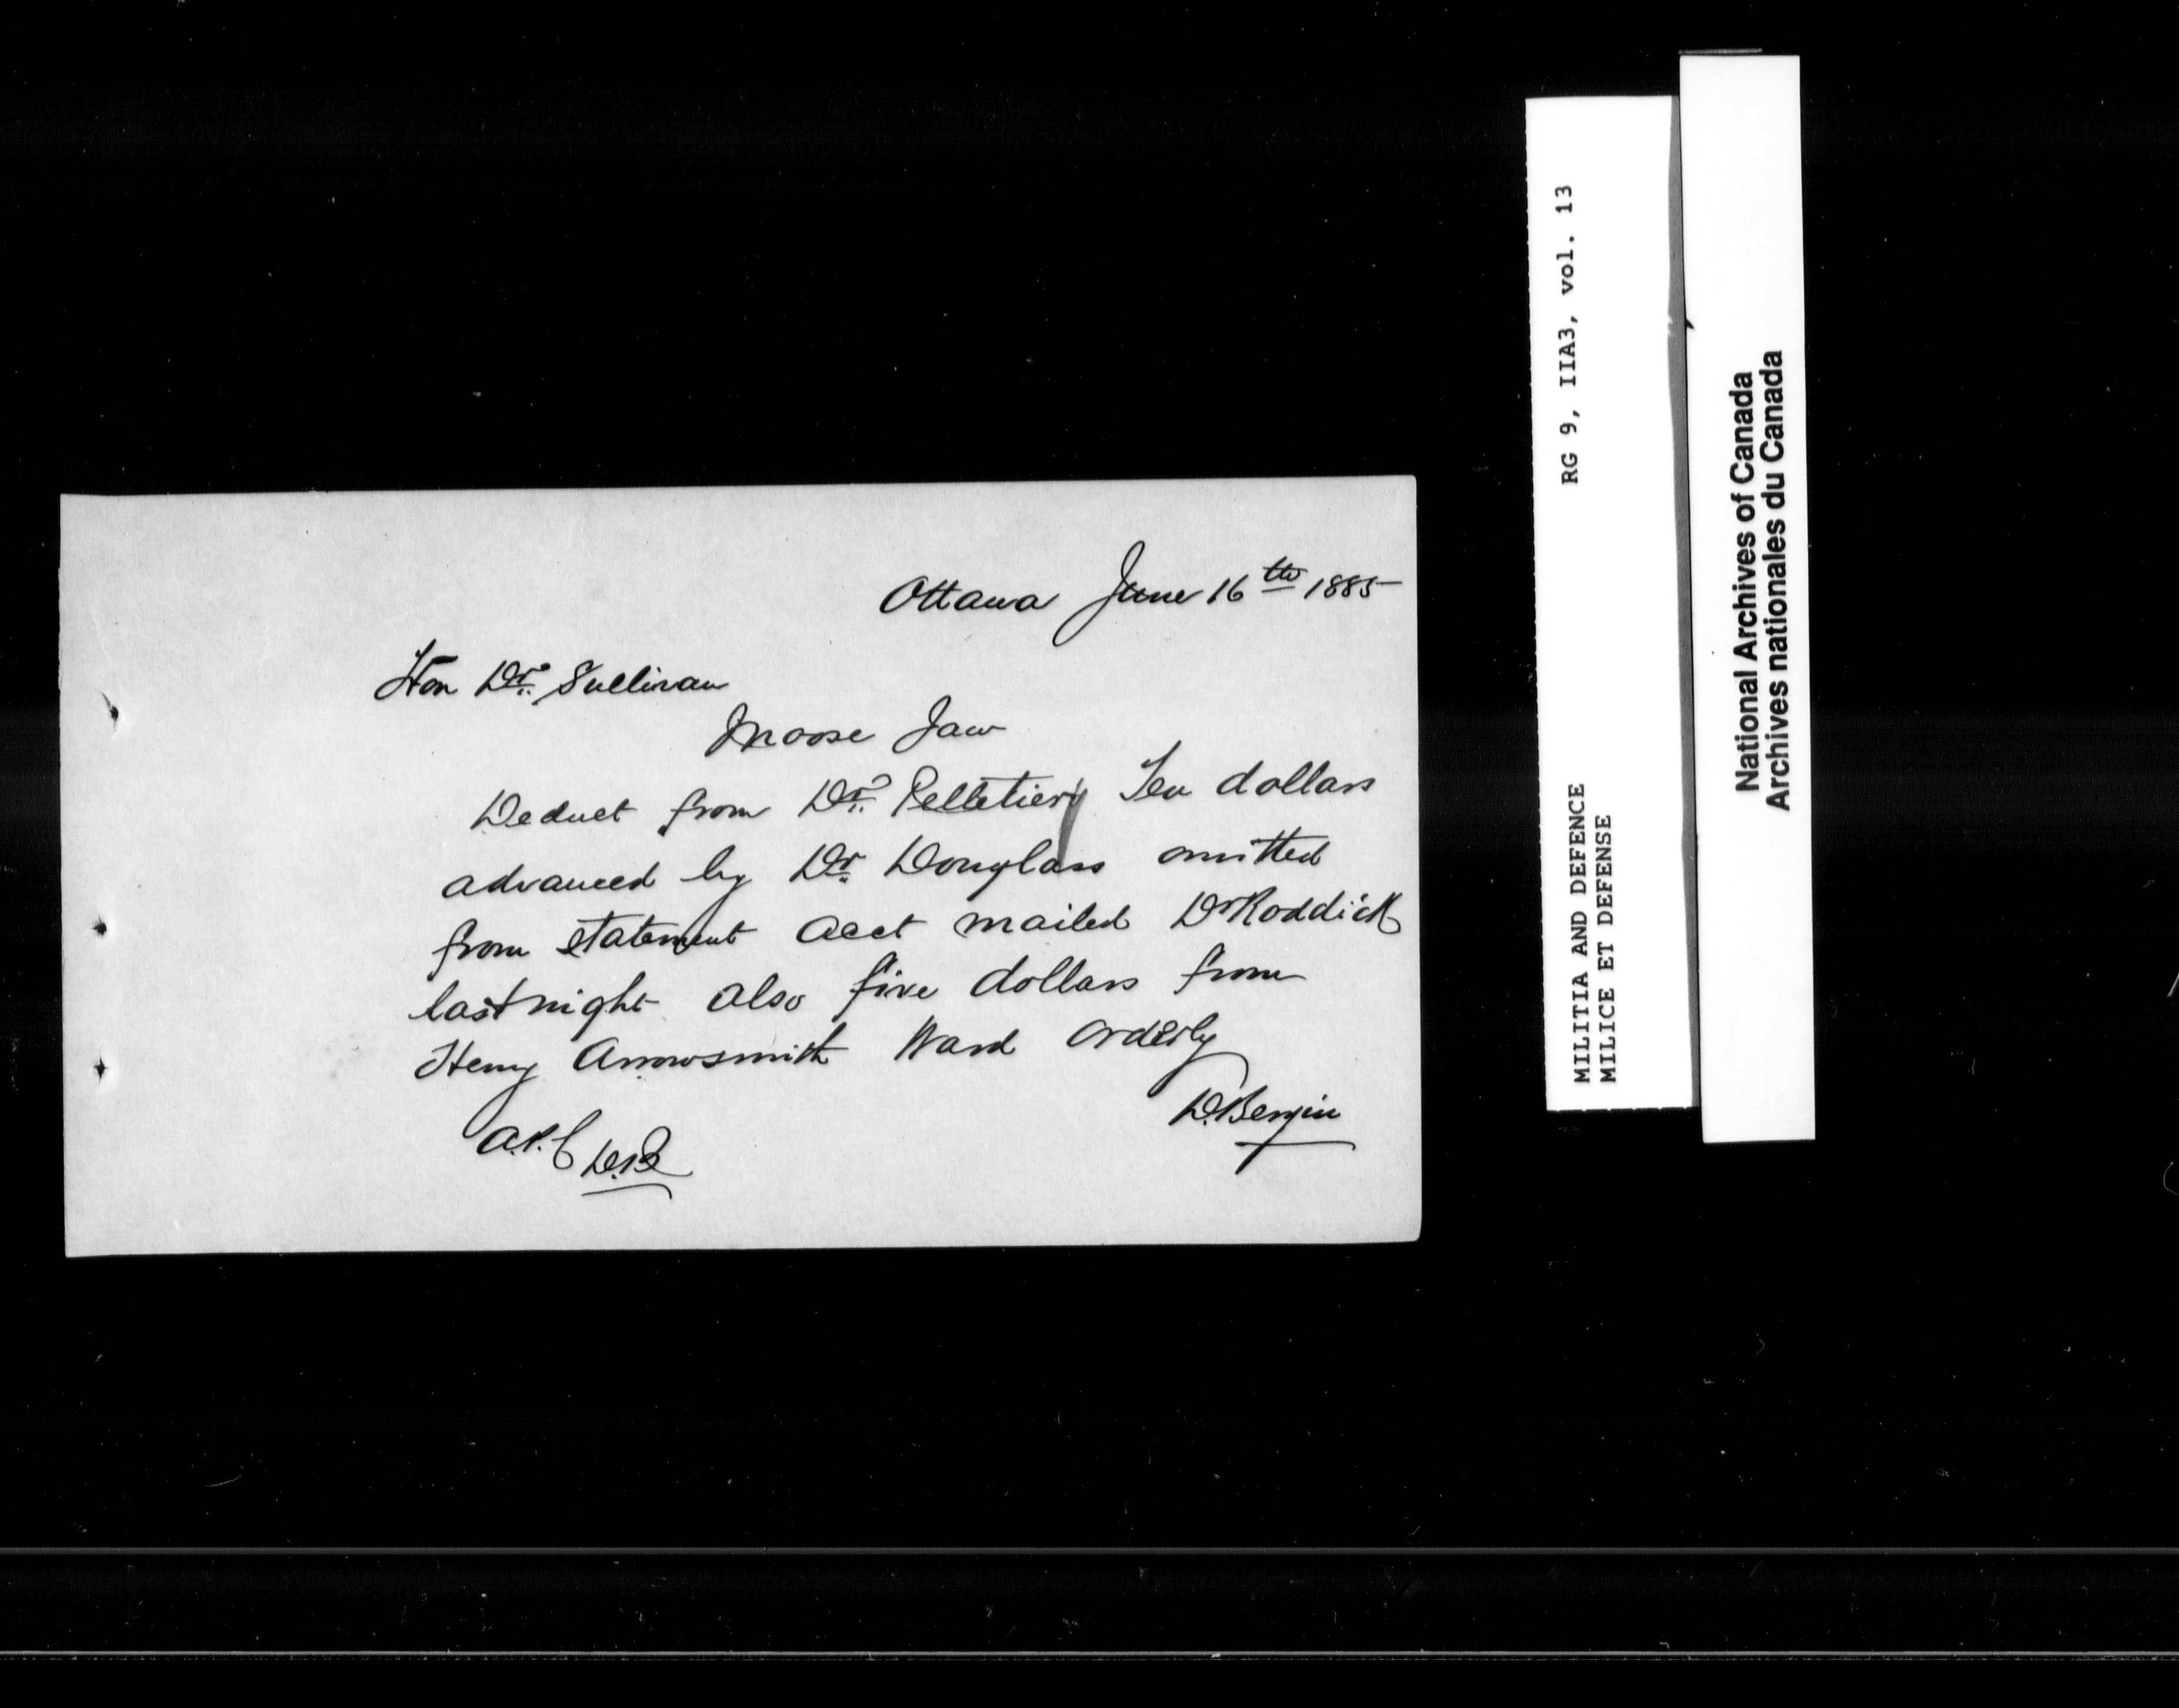 Ottawa June 16th 1885
Hon Dr. Sullivan
Moose Jaw
Deduct from Dr. Pelletier Ten dollars
advanced by Dr. Douglass omitted
from statement acct mailed Dr Roddick
last night also five dollars from
Henry Arrowsmith Ward orderly
D. Bergin
D.B.
RG 9, IIA3, vol. 13
MILITIA AND DEFENCE
MILICE ET DEFENSE
National Archives of Canada
Archives nationales du Canada